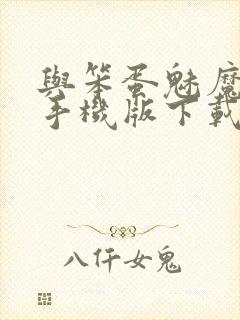 與笨蛋魅魔
手機版下載
八仟女鬼